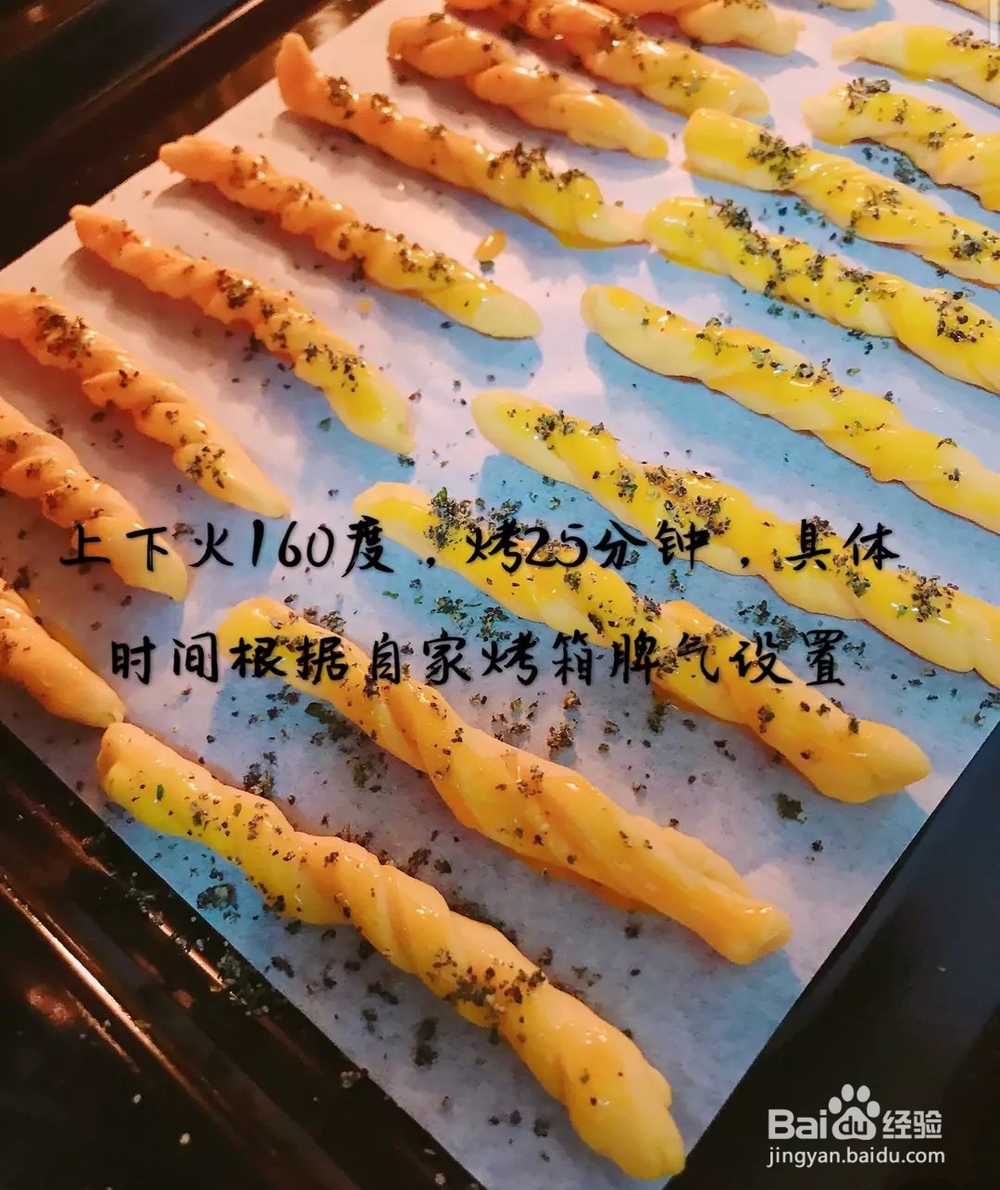 上下火160度，烤25分钟，具体
时间根据自家烤箱脾气设置
Baidu经验
jingyan.baidu.com